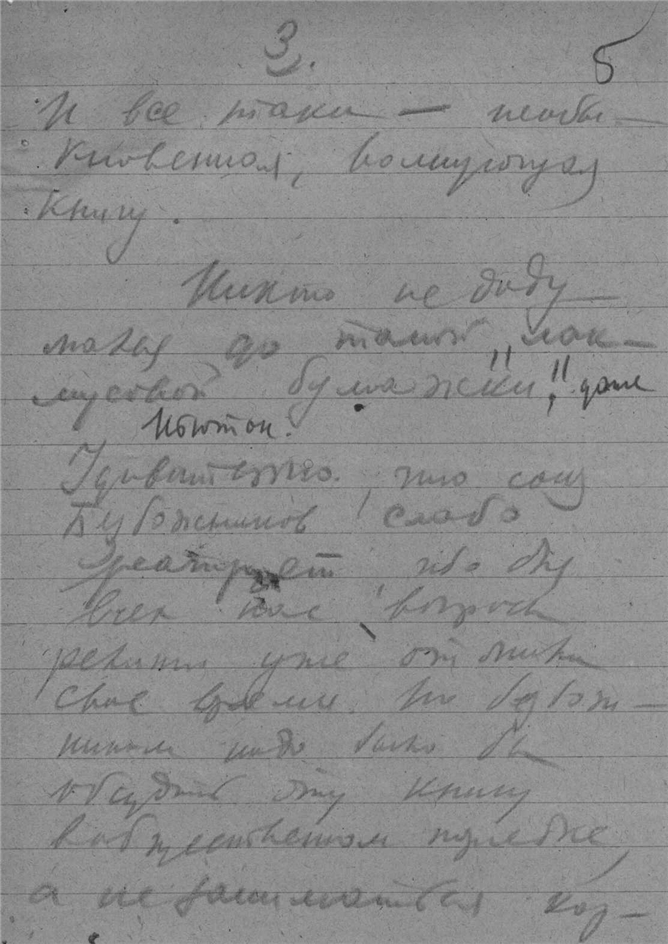 3.
5
И все таки — необы-
кновенная, волнующая
книга.
Никто не доду-
мался до такой „лак-
мусовой бумажки", даже
Ньютон.
Удивительно, что союз
Безбожников слабо
реагирует, ибо для
всех нас вопросы
религии уже отжили
свое время. Но безбож-
никам надо было бы
обсудить эту книгу
в общественном порядке,
а не заниматься